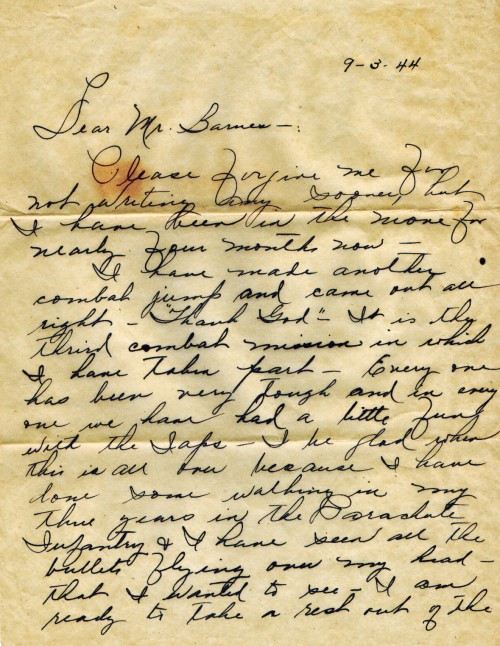 9-3-44
Dear Mr. Barnes-:
Please forgive me for
not writing any sooner, but
I have been in the move for
nearly four months now -
I have made another
combat jump and came out all
right - "Thank God" - It is the
third combat mission in which
I have taken part - Every one
has been very tough and in every
one we have had a little fung
with the Japs - I be glad when
this is all over because I have
done some walking in my
three years in the Parachute
Infantry & I have seen all the
bullets flying over my head -
that I wanted to see - I am
ready to take a rest out of the